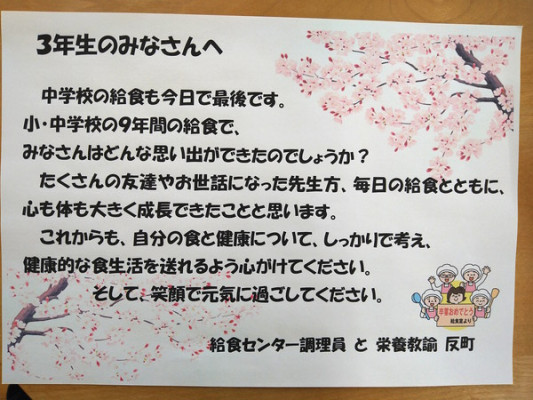 3年生のみなさんへ
中学校の給食も今日で最後です。
小・中学校の9年間の給食で、
みなさんはどんな思い出ができたのでしょうか？
たくさんの友達やお世話になった先生方、毎日の給食とともに、
心も体も大きく成長できたことと思います。
これからも、自分の食と健康について、しっかりで考え、
健康的な食生活を送れるよう心がけてください。
そして、笑顔で元気に過ごしてください。
卒業おめでとう
給食室より
給食センター調理員 と 栄養教諭 反町